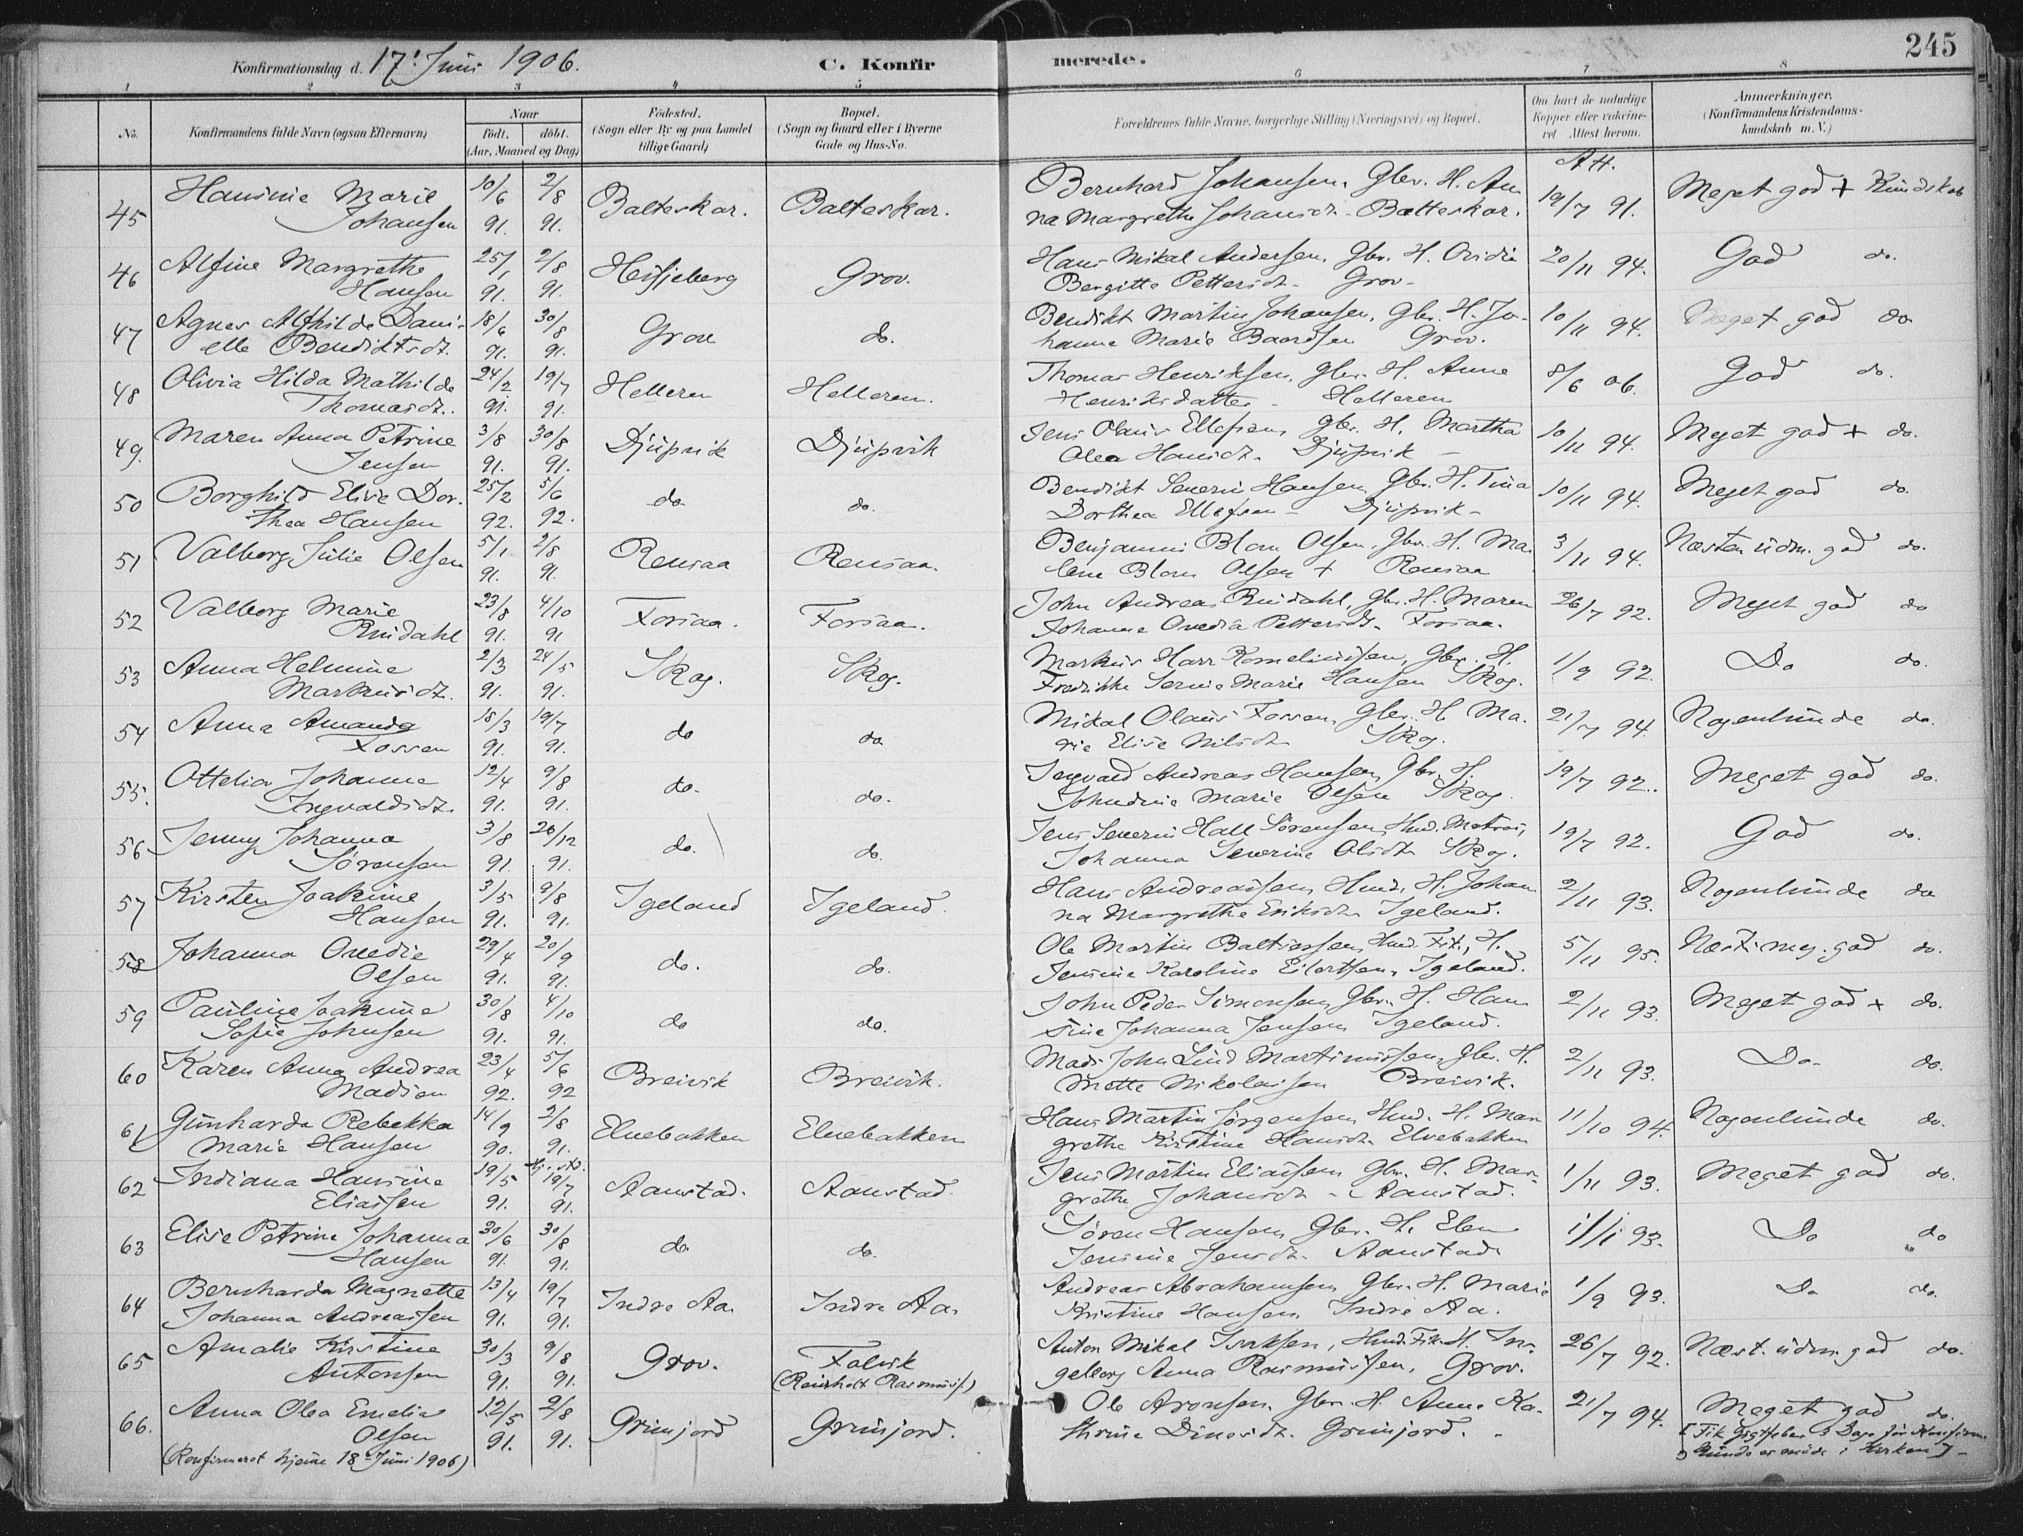 245
Konfirmationsdag d. 17' Juni 1906. C. Konfirmerede.
1 2 3 4 5 6 7 8
No. Konfirmandens fulde Navn (ogsaa Efternavn) Naar født. døbt. (Aar, Maaned og Dag) Fødested. (Sogn eller By og paa Landet tillige Gaard) Bopæl. (Sogn og Gaard eller i Byerne Gade og Hus-No. Forældrenes fulde Navne, borgerlige Stilling (Næringsvei) og Bopæl. Om havt de naturlige Kopper eller vakcineret. Attest herom. Anmærkninger. (Konfirmandens Kristendomskundskab m. V.)
Att.
45 Hansine Marie 10/6 2/8 Balteskar. Balteskar. Bernhard Johansen, Gbr. H. An- 19/7 91. Meget god + Kundskab
Johansen 91. 91. na Margrethe Johansdt. Balteskar.
46 Alfine Margrethe 25/1 2/8 Heisjeberg Grov. Hans Mikal Andersen, Gbr. H. Ovidia 20/11 94. God do.
Hansen 91. 91. Bergitte Pettersdt. Grov.
47 Agnes Alfhilde Dani- 18/6 30/8 Grov do. Bendikt Martin Johansen, Gbr. H. Jo- 10/11 94. Meget god do
elle Bendiktsdt. 91. 91. hanne Marie Baardsen Grov.
48 Olivia Hilda Mathilde 24/2 19/7 Helleren Helleren. Thomas Henriksen, Gbr. H. Anne 8/6 06. God do.
Thomasdt. 91. 91. Henriksdatter Helleren
49. Maren Anna Petrine 3/8 30/8 Djupvik Djupvik Jens Olaus Ellefsen, Gbr. H. Martha 10/11 94. Meget god + do.
Jensen 91. 91. Olea Hansdt. Djupvik
50 Borghild Elise Dor- 25/2 5/6 do do. Bendikt Severin Hansen, Gbr. H. Tina 10/11 94. Meget god do.
thea Hansen 92. 92. Dorthea Ellefsen Djupvik
51 Valborg Julie Olsen 5/1 2/8 Rensaa Rensaa. Benjamin Blom Olsen, Gbr. H. Ma- 3/11 94. Næsten udm. god do.
91. 91. lene Blom Olsen + Rensaa
52 Valborg Marie 23/8 4/10 Forsaa. Forsaa. John Andreas Rindahl, Gbr. H. Maren 26/7 92. Meget god do
Rindahl 91. 91 Johanne Ovedia Pettersdt. Forsaa.
53 Anna Helmine 2/3 24/5 Skog. Skog. Markus Harr Korneliussen, Gbr. H. 1/9 92. Do do.
Markusdt. 91. 91. Fredrikke Marie Hansen Skog.
54 Anna Amanda 18/3 19/7 do do Mikal Olaus Fossen, Gbr. H. Ma- 21/7 94. Nogenlunde do.
Fossen 91. 91. rie Elise Nilsdt. Skog.
55. Ottelia Johanne 12/4 9/8 do. do. Ingvald Andreas Hansen, Gbr. H. 19/7 92. Meget god do.
Ingvaldsdt. 91. 91. Johndine Marie Olsen Skog
56 Jenny Johanna 3/8 26/12 do. do. Jens Severin Hall Sørensen, Hmd. Matros, 19/7 92. God do.
Sørensen 91. 91. Johanna Severine Olsdt. Skog.
57 Kirsten Joakime 3/5 9/8 Igeland Igeland. Hans Andreassen, Hmd. H. Johan 2/11 93. Nogenlunde do
Hansen 91. 91. na Margrethe Eriksdt. Igeland.
58 Johanna Ovedie 29/4 20/9 do. do. Ole Martin Baltsersen, Hmd. Fik., H. 5/11 95. Næst. meg. god do.
Olsen 91. 91. Jensine Karoline Eilertsen, Igeland.
59 Pauline Joakime 30/8 4/10 do do. John Peder Simonsen, Gbr. H. Han 2/11 93. Meget god + do.
Sofie Johnsen 91. 91. sine Johanna Jensen Igeland.
60 Karen Anna Andrea 23/4 5/6 Breivik Breivik. Mads John Lind Martinussen, Gbr. H. 2/11 93. Do. do.
Madsen 92. 92 Mette Nikolaisen Breivik.
61 Gunharda Rebekka 14/9 2/8 Elvebakken Elvebakken Hans Martin Jørgensen, Hmd. H. Mar 11/10 94. Nogenlunde do.
Marie Hansen 90. 91. grethe Kirstine Hansdt. Elvebakken
62 Indiana Hansine 19/5 19/7 Aanstad. Aanstad. Jens Martin Eliassen, Gbr. H. Mar- 1/11 93. Meget god do.
Eliassen 91. 91. grethe Johansdt. Aanstad.
63 Elise Petrine Johanna 30/6 30/8 do. do. Søren Hansen, Gbr. H. Elen 1/11 93. Do do
Hansen 91. 91. Jensine Jensdt. Aanstad.
64 Bernharda Magnette 13/4 19/7 Indre Aa. Indre Aa. Andreas Abrahamsen, Gbr. H. Marie 1/9 93. Do do.
Johanna Andreassen 91. 91. Kristine Hansen, Indre Aa.
65 Amalie Kirstine 30/3 9/8 Grov. Falvik Anton Mikal Isaksen, Hmd. Fik. H. In- 26/7 92. Næst. udm. god do.
Antonsen 91. 91. (Reinholt Rasmuss.) geborg Anna Rasmussen, Grov.
66. Anna Olea Emelie 12/5 2/8 Grunjord Grunjord. Ole Aronsen, Gbr. H. Anne Ka- 21/7 94. Meget god do.
Olsen 91. 91. thrine Dinesdt. Grunjord.
(Konfirmeret hjeme 18de Juni 1906) [Fik Gigtfeber 3 Dage før Konfirm. Kunde ei møde i Kirken]